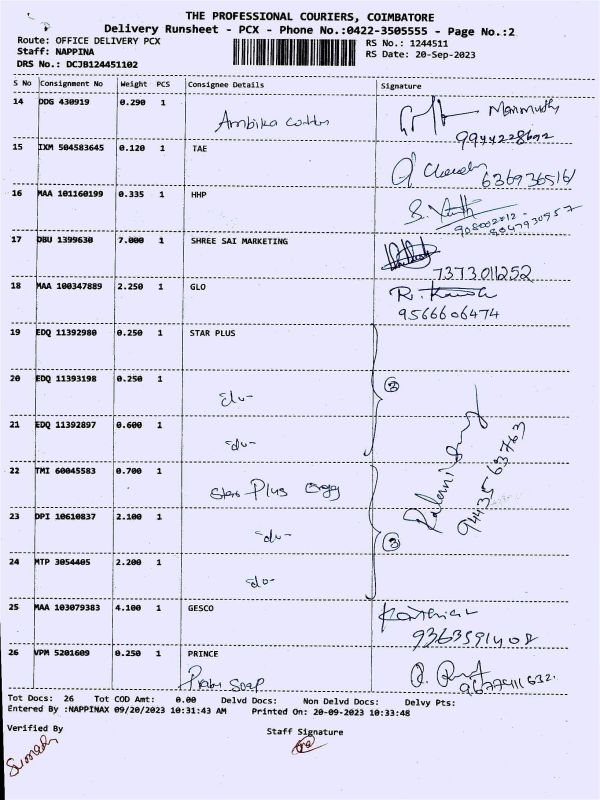 THE PROFESSIONAL COURIERS, COIMBATORE
Delivery Runsheet - PCX - Phone No.:0422-3505555 - Page No.:2
Route: OFFICE DELIVERY PCX RS No.: 1244511
Staff: NAPPINA RS Date: 20-Sep-2023
DRS No.: DCJB124451102
S No Consignment No Weight PCS Consignee Details Signature
14 DDG 430919 0.290 1
Ambika
9944228692
15 IXM 504583645 0.120 1 TAE
6369365161
16 MAA 101160199 0.335 1 HHP
17 DBU 1399630 7.000 1 SHREE SAI MARKETING
7373011252
18 MAA 100347889 2.250 1 GLO
9566606474
19 EDQ 11392980 0.250 1 STAR PLUS
20 EDQ 11393198 0.250 1
-do-
21 EDQ 11392897 0.600 1
-do-
22 TMI 60045583 0.700 1
Star Plus
23 DPI 10610837 2.100 1
-do-
24 MTP 3054405 2.200 1
-do-
3
9443563763
25 MAA 103079383 4.100 1 GESCO
9363591408
26 VPM 5201609 0.250 1 PRINCE
Soap
Tot Docs: 26 Tot COD Amt: 0.00 Delvd Docs: Non Delvd Docs: Delvy Pts:
Entered By :NAPPINAX 09/20/2023 10:31:43 AM Printed On: 20-09-2023 10:33:48
Verified By Staff Signature